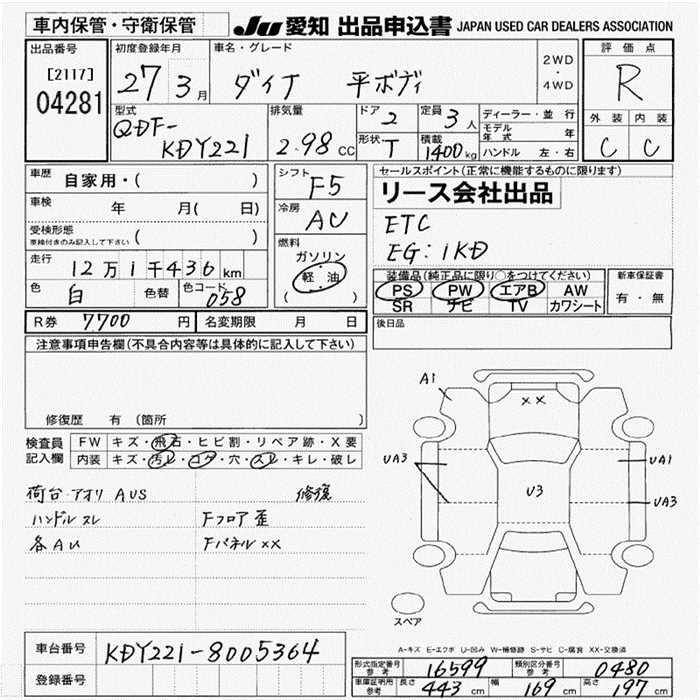 車内保管・守衛保管
JU 愛知 出品申込書 JAPAN USED CAR DEALERS ASSOCIATION
出品番号
[2117]
04281
初度登録年月
27 3月
車名・グレード
ダイナ 平ボディ
2WD
・
4WD
評価点
R
外装 内装
C C
型式
QDF-
KDY221
排気量
2.98 CC
ドア
2
定員
3人
形状
T
積載
1400kg
ディーラー・並行
モデル年式 年
ハンドル 左・右
車歴
自家用・( )
車検
年 月( 日)
受検形態
車検付きのみ記入して下さい ( )
走行
12万1千436km
色
白
色替
色コード
058
シフト
F5
冷房
AU
燃料
ガソリン
・
軽・油
( )
セールスポイント(正常に機能するものに限ります)
リース会社出品
ETC
EG:1KD
装備品(純正品に限り○をつけてください)
PS PW エアB AW
SR ナビ TV カワシート
新車保証書
有・無
R券 7700 円
名変期限 月 日
後日品
注意事項申告欄(不具合内容等は具体的に記入して下さい)
修復歴 有 (箇所 )
検査員
記入欄
FW キズ・飛石・ヒビ割・リペア跡・X要
内装 キズ・汚レ・コゲ・穴・スレ・キレ・破レ
荷台・アオリ AUS 修復
ハンドルスレ Fフロア歪
各AU Fパネル××
A1
××
UA3
U3
UA1
UA3
スペア
A-キズ E-エクボ U-凹み W-補修跡 S-サビ C-腐食 XX-交換済
車台番号 KDY221-8005364
登録番号
形式指定番号
参考
16599
類別区分番号
参考
0480
車庫証明用
参考
長さ 443cm 幅 169cm 高さ 97cm